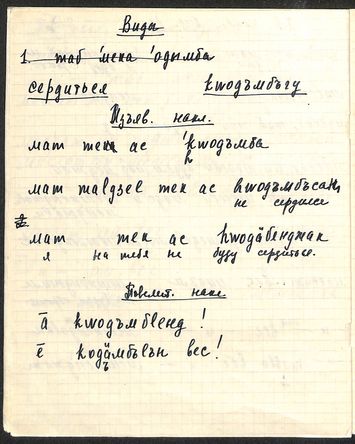 Виды
1. таб 'мека 'одымба
сердиться кwодъмбъгу
Изъяв. накл.
мат тек ас 'кwодъмба
мат таlдзеl тек ас кwодъмбъсаң
не сердился
мат тек ас кwодäбенджак
я на тебя не буду сердиться.
Повелит. накл.
ā кwодъмбленд !
ē кодäмбlъlн вес!